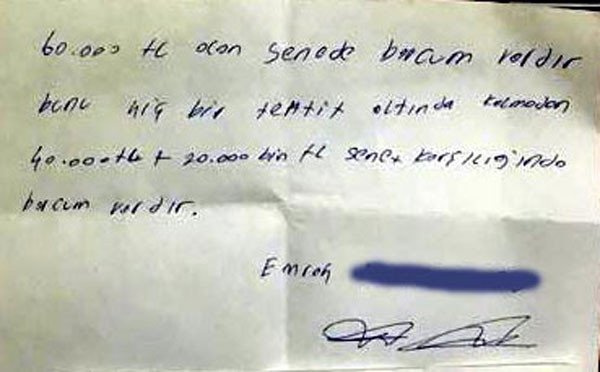 60.000 tl olan senede borcum vardır
bunu hiç bir tehtit altında kalmadan
40.000tl + 20.000 bin tl senet karşılığında
borcum vardır.
Emrah